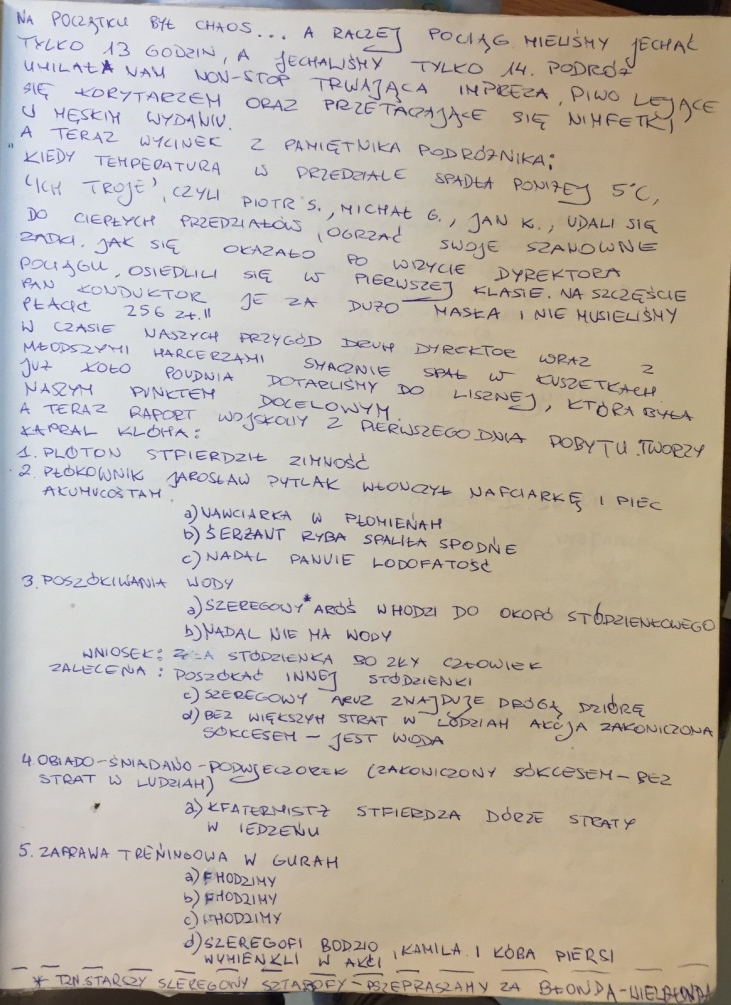 NA POCZĄTKU BYŁ CHAOS... A RACZEJ POCIĄG. MIELIŚMY JECHAĆ
TYLKO 13 GODZIN, A JECHALIŚMY TYLKO 14. PODRÓŻ
UMILAŁA NAM NON-STOP TRWAJĄCA IMPREZA, PIWO LEJĄCE
SIĘ KORYTARZEM ORAZ PRZETACZAJĄCE SIĘ NIMFETKI
W MĘSKIM WYDANIU.
A TERAZ WYCINEK Z PAMIĘTNIKA PODRÓŻNIKA:
"KIEDY TEMPERATURA W PRZEDZIALE SPADŁA PONIŻEJ 5°C,
"ICH TROJE", CZYLI PIOTR S., MICHAŁ G., JAN K., UDALI SIĘ
DO CIEPŁYCH PRZEDZIAŁÓW, OGRZAĆ SWOJE SZANOWNE
ZADKI. JAK SIĘ OKAZAŁO PO WIZYCIE DYREKTORA
POCIĄGU, OSIEDLILI SIĘ W PIERWSZEJ KLASIE. NA SZCZĘŚCIE
PAN KONDUKTOR JE ZA DUŻO MASŁA I NIE MUSIELIŚMY
PŁACIĆ 256 ZŁ."
W CZASIE NASZYCH PRZYGÓD DRUH DYREKTOR WRAZ Z
MŁODSZYMI HARCERZAMI SMACZNIE SPAŁ W KUSZETKACH
JUŻ KOŁO POUDNIA DOTARLIŚMY DO LISZNEJ, KTÓRA BYŁA
NASZYM PUNKTEM DOCELOWYM.
A TERAZ RAPORT WOJSKOWY Z PIERWSZEGO DNIA POBYTU. TWORZY
KAPRAL KLÓHA:
1. PLÓTON STFIERDZIŁ ZIMNOŚĆ
2. PŁÓKOWNIK JAROSŁAW PYTLAK WŁONCZYŁ NAFCIARKĘ I PIEC
AKUMUCOSTAM
a) NAWCIARKA W PŁOMIENAH
b) SERZANT RYBA SPALIŁA SPODNE
c) NADAL PANUIE LODOFATOŚĆ
3. POSZÓKIWANIA WODY
a) SZEREGOWY* ARÓŚ WHODZI DO OKOPÓ STÓDZIENKOWEGO
b) NADAL NIE MA WODY
WNIOSEK: ZŁA STÓDZIENKA BO ZŁY CZŁOWIEK
ZALECENA: POSZÓKAĆ INNEJ STÓDZIENKI
c) SZEREGOWY ARUZ ZNAJDUJE DRÓGĄ DZIÓRĘ
d) BEZ WIĘKSZYH STRAT W LÓDZIAH AKCJA ZAKONICZONA
SÓKCESEM - JEST WODA
4. OBIADO-ŚNIADANO-PODWJECZOREK (ZAKONICZONY SÓKCESEM - BEZ
STRAT W LUDZIAH)
a) KFATERMISTZ STFIERDZA DÓRZE STRATY
W IEDZENU
5. ZAPRAWA TRENINGOWA W GURAH
a) HODZIMY
b) HODZIMY
c) HODZIMY
d) SZEREGOFI BODZIO, KAMILA I KÓBA PIERSI
WYMIENKLI W AKCI
* TZN. STARSZY SZEREGOWY SZTABOFY - PSZEPRASZAMY ZA BŁONDA-WIELBŁONDA